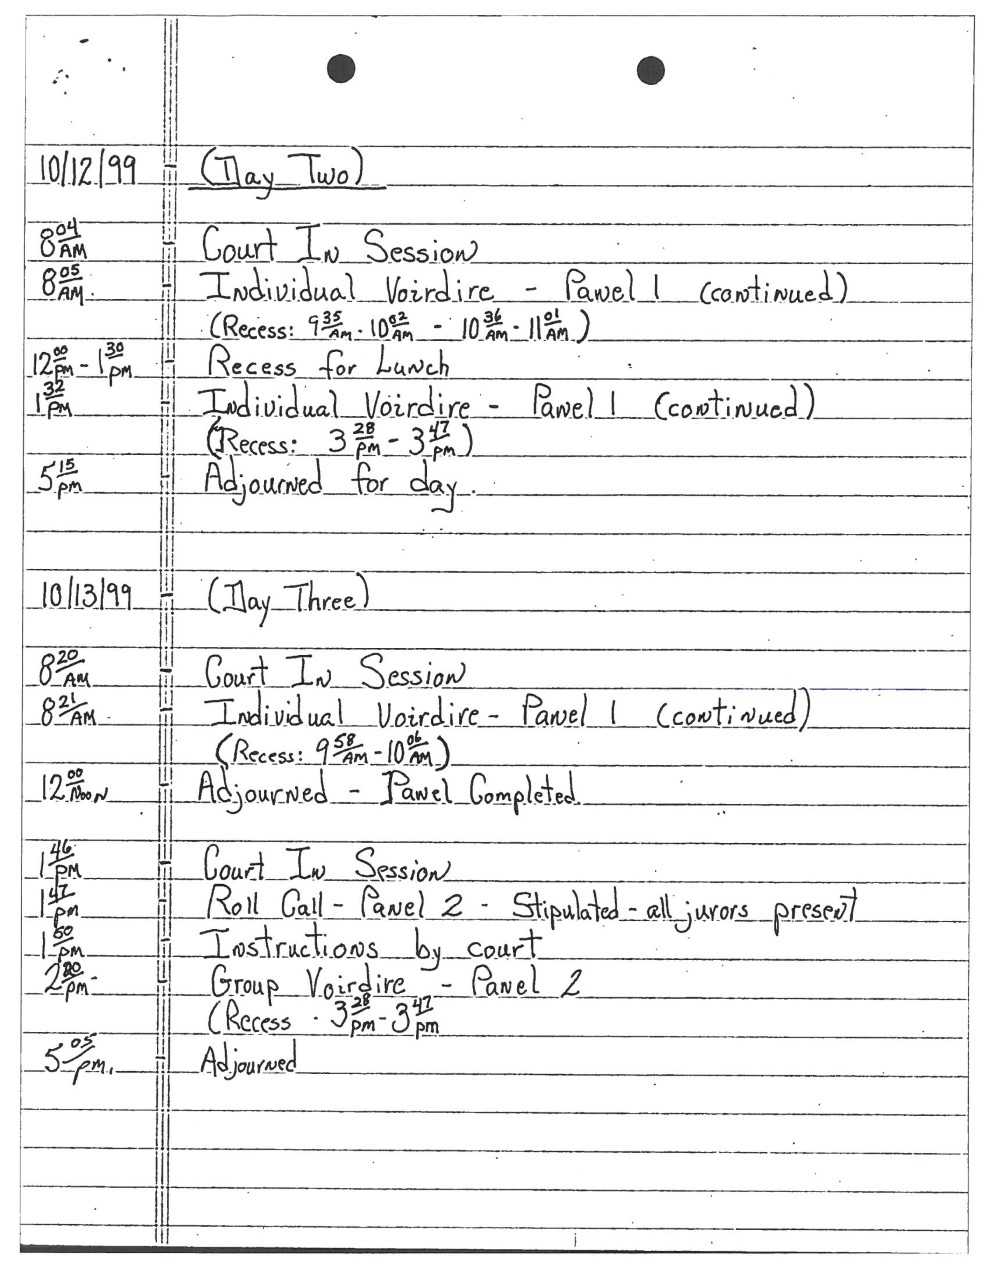 10/12/99 - (Day Two)
8 04 AM - Court In Session
8 05 AM. - Individual Voirdire - Panel 1 (continued)
(Recess: 9 35 AM - 10 02 AM - 10 36 AM - 11 01 AM)
12 00 PM - 1 30 PM - Recess for Lunch
1 32 PM - Individual Voirdire - Panel 1 (continued)
(Recess: 3 28 pm - 3 47 pm)
5 15 pm - Adjourned for day.
10/13/99 - (Day Three)
8 20 AM - Court In Session
8 21 AM - Individual Voirdire - Panel 1 (continued)
(Recess: 9 58 AM - 10 06 AM)
12 00 Noon - Adjourned - Panel Completed
1 46 PM - Court In Session
1 47 pm - Roll Call - Panel 2 - Stipulated - all jurors present
1 50 pm - Instructions by court
2 20 pm - Group Voirdire - Panel 2
(Recess - 3 28 pm - 3 47 pm
5 05 pm. - Adjourned